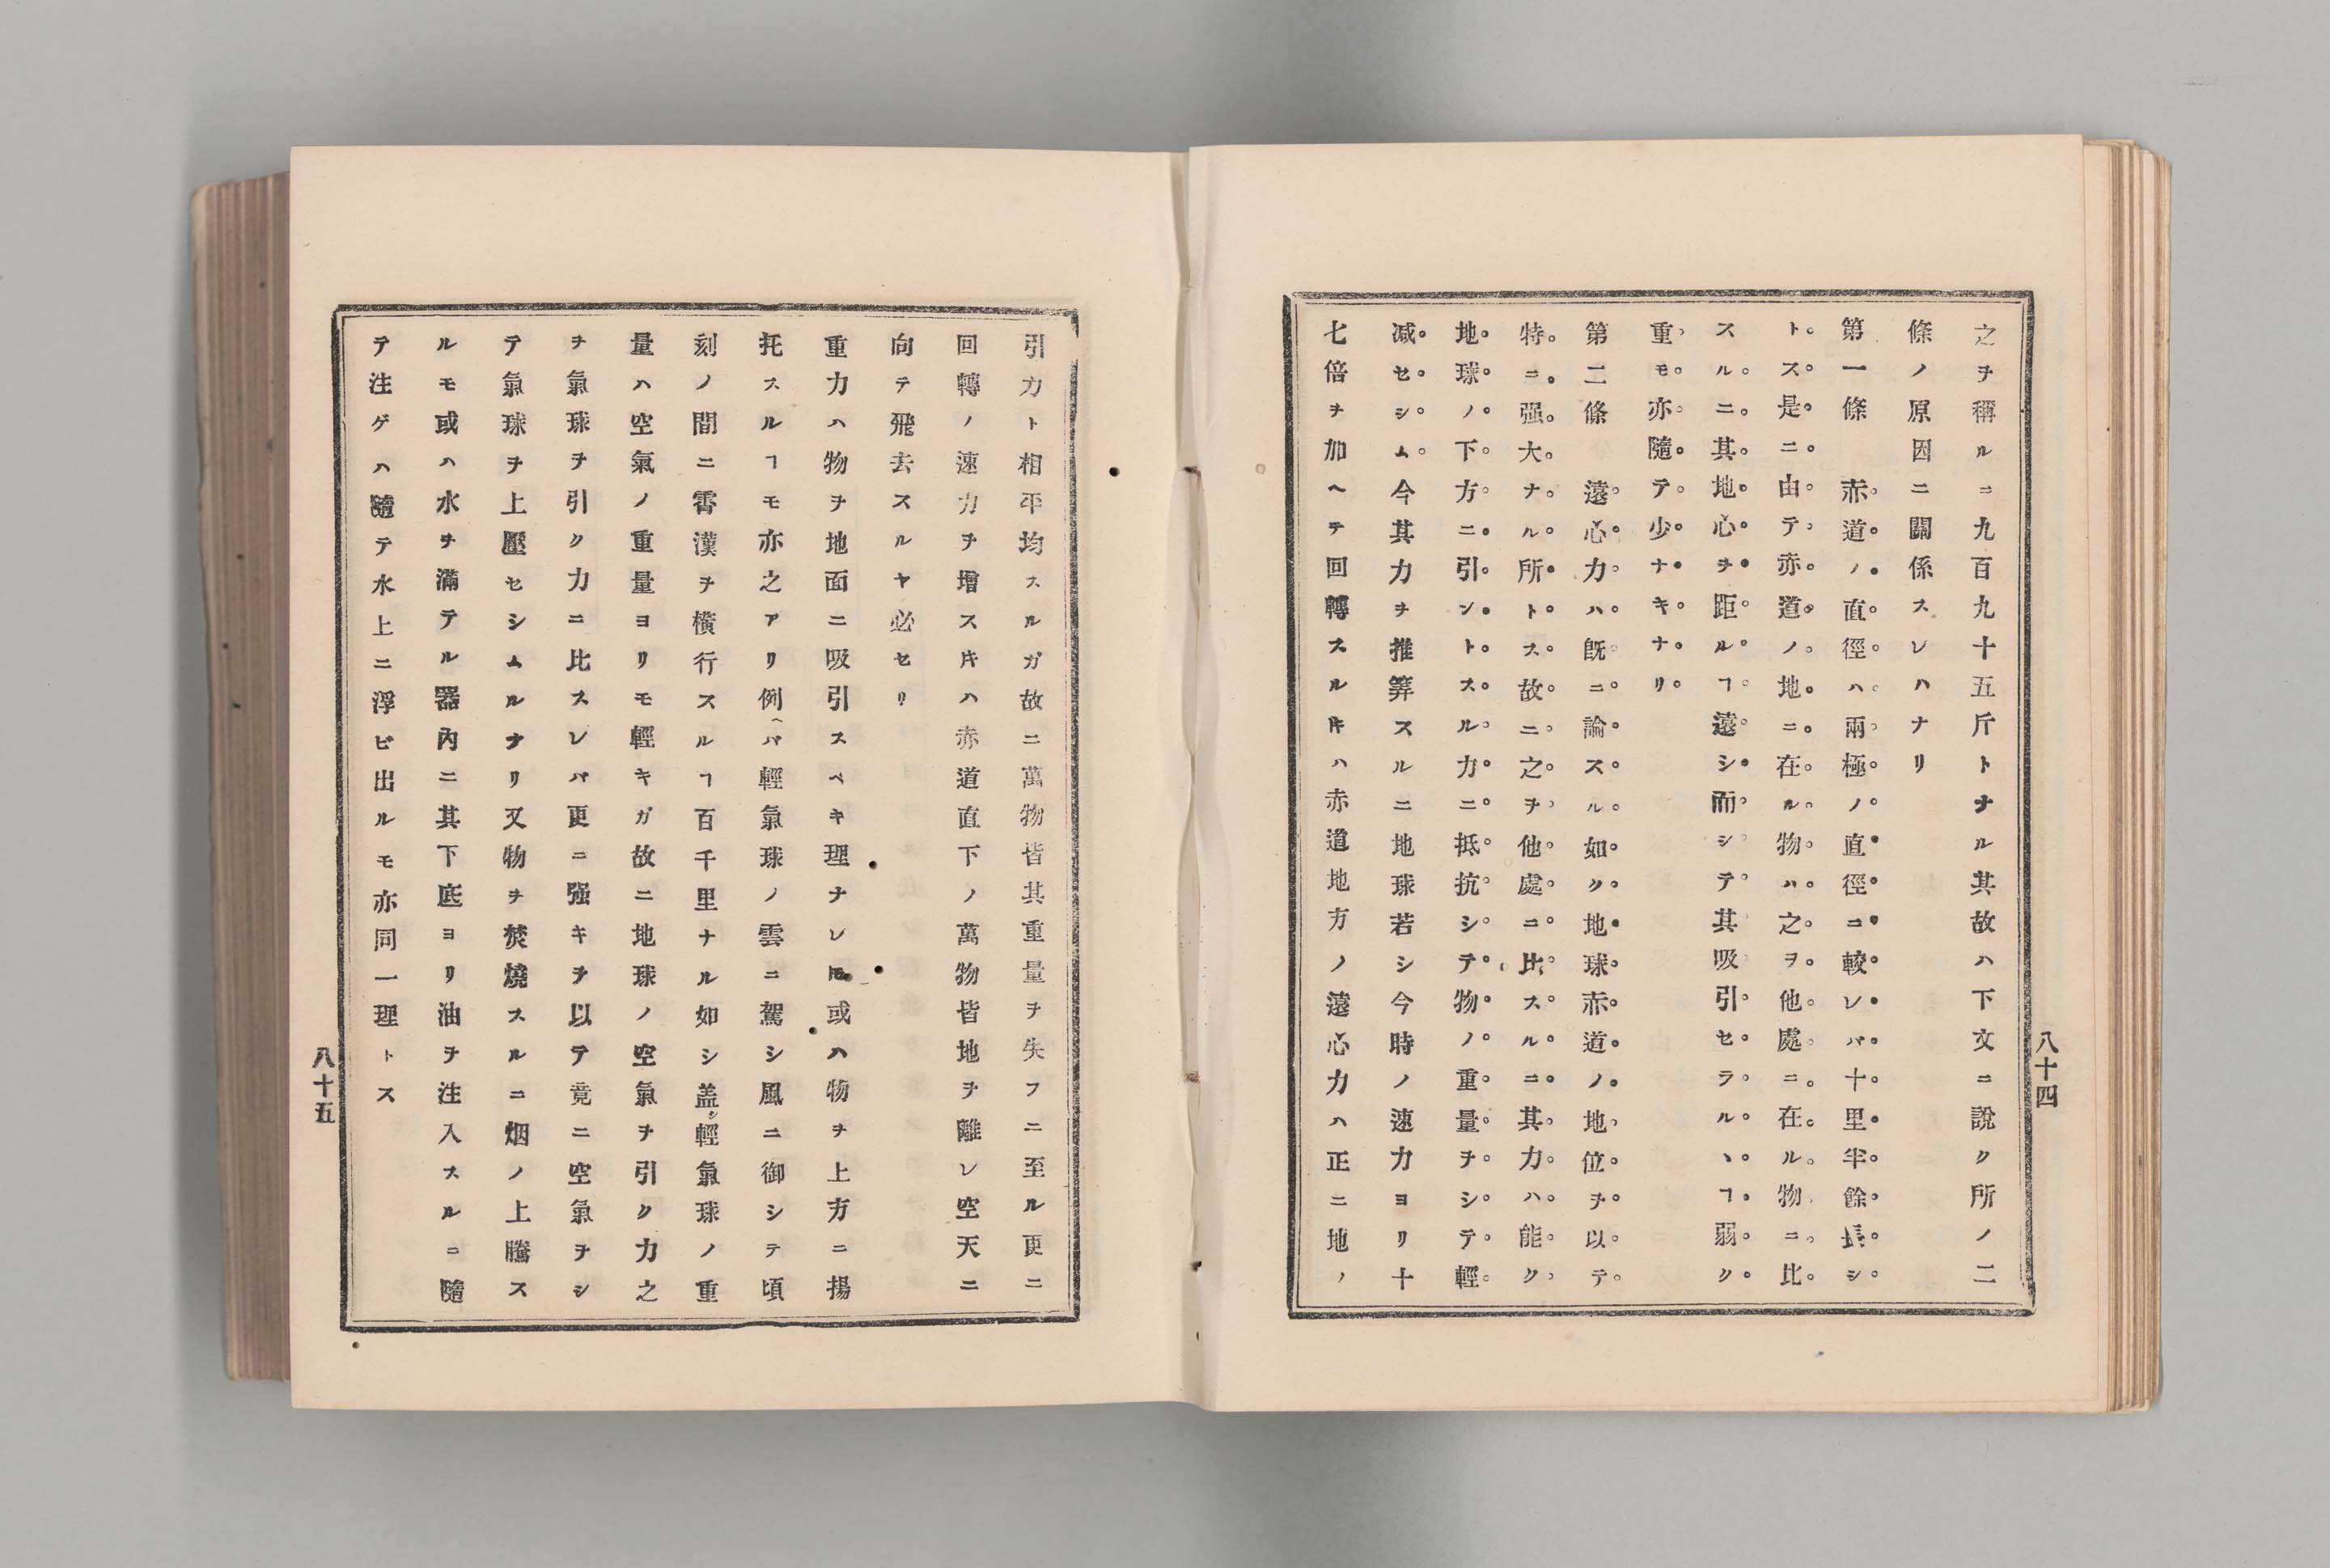 之ヲ稱ルニ九百九十五斤トナル其故ハ下文ニ說ク所ノ二
條ノ原因ニ關係スレハナリ
第一條　赤道ノ直徑ハ兩極ノ直徑ニ較レバ十里半餘長シ
トス是ニ由テ赤道ノ地ニ在ル物ハ之ヲ他處ニ在ル物ニ比
スルニ其地心ヲ距ルヿ遠シ而シテ其吸引セラルヽヿ弱ク
重モ亦隨テ少ナキナリ
第二條　遠心力ハ旣ニ論スル如ク地球赤道ノ地位ヲ以テ
特ニ强大ナル所トス故ニ之ヲ他處ニ比スルニ其力ハ能ク
地球ノ下方ニ引ントスル力ニ抵抗シテ物ノ重量ヲシテ輕
減セシム今其力ヲ推算スルニ地球若シ今時ノ速力ヨリ十
七倍ヲ加ヘテ回轉スルキハ赤道地方ノ遠心力ハ正ニ地ノ
八十四
引力ト相平均スルガ故ニ萬物皆其重量ヲ失フニ至ル更ニ
回轉ノ速力ヲ增スキハ赤道直下ノ萬物皆地ヲ離レ空天ニ
向テ飛去スルヤ必セリ
重力ハ物ヲ地面ニ吸引スベキ理ナレ𪜈或ハ物ヲ上方ニ揚
托スルヿモ亦之アリ例ヘバ輕氣球ノ雲ニ駕シ風ニ御シテ頃
刻ノ間ニ霄漢ヲ橫行スルヿ百千里ナル如シ盖シ輕氣球ノ重
量ハ空氣ノ重量ヨリモ輕キガ故ニ地球ノ空氣ヲ引ク力之
ヲ氣球ヲ引ク力ニ比スレバ更ニ强キヲ以テ竟ニ空氣ヲシ
テ氣球ヲ上壓セシムルナリ又物ヲ焚燒スルニ烟ノ上騰ス
ルモ或ハ水ヲ滿テル器內ニ其下底ヨリ油ヲ注入スルニ隨
テ注ゲハ隨テ水上ニ浮ビ出ルモ亦同一理トス
八十五